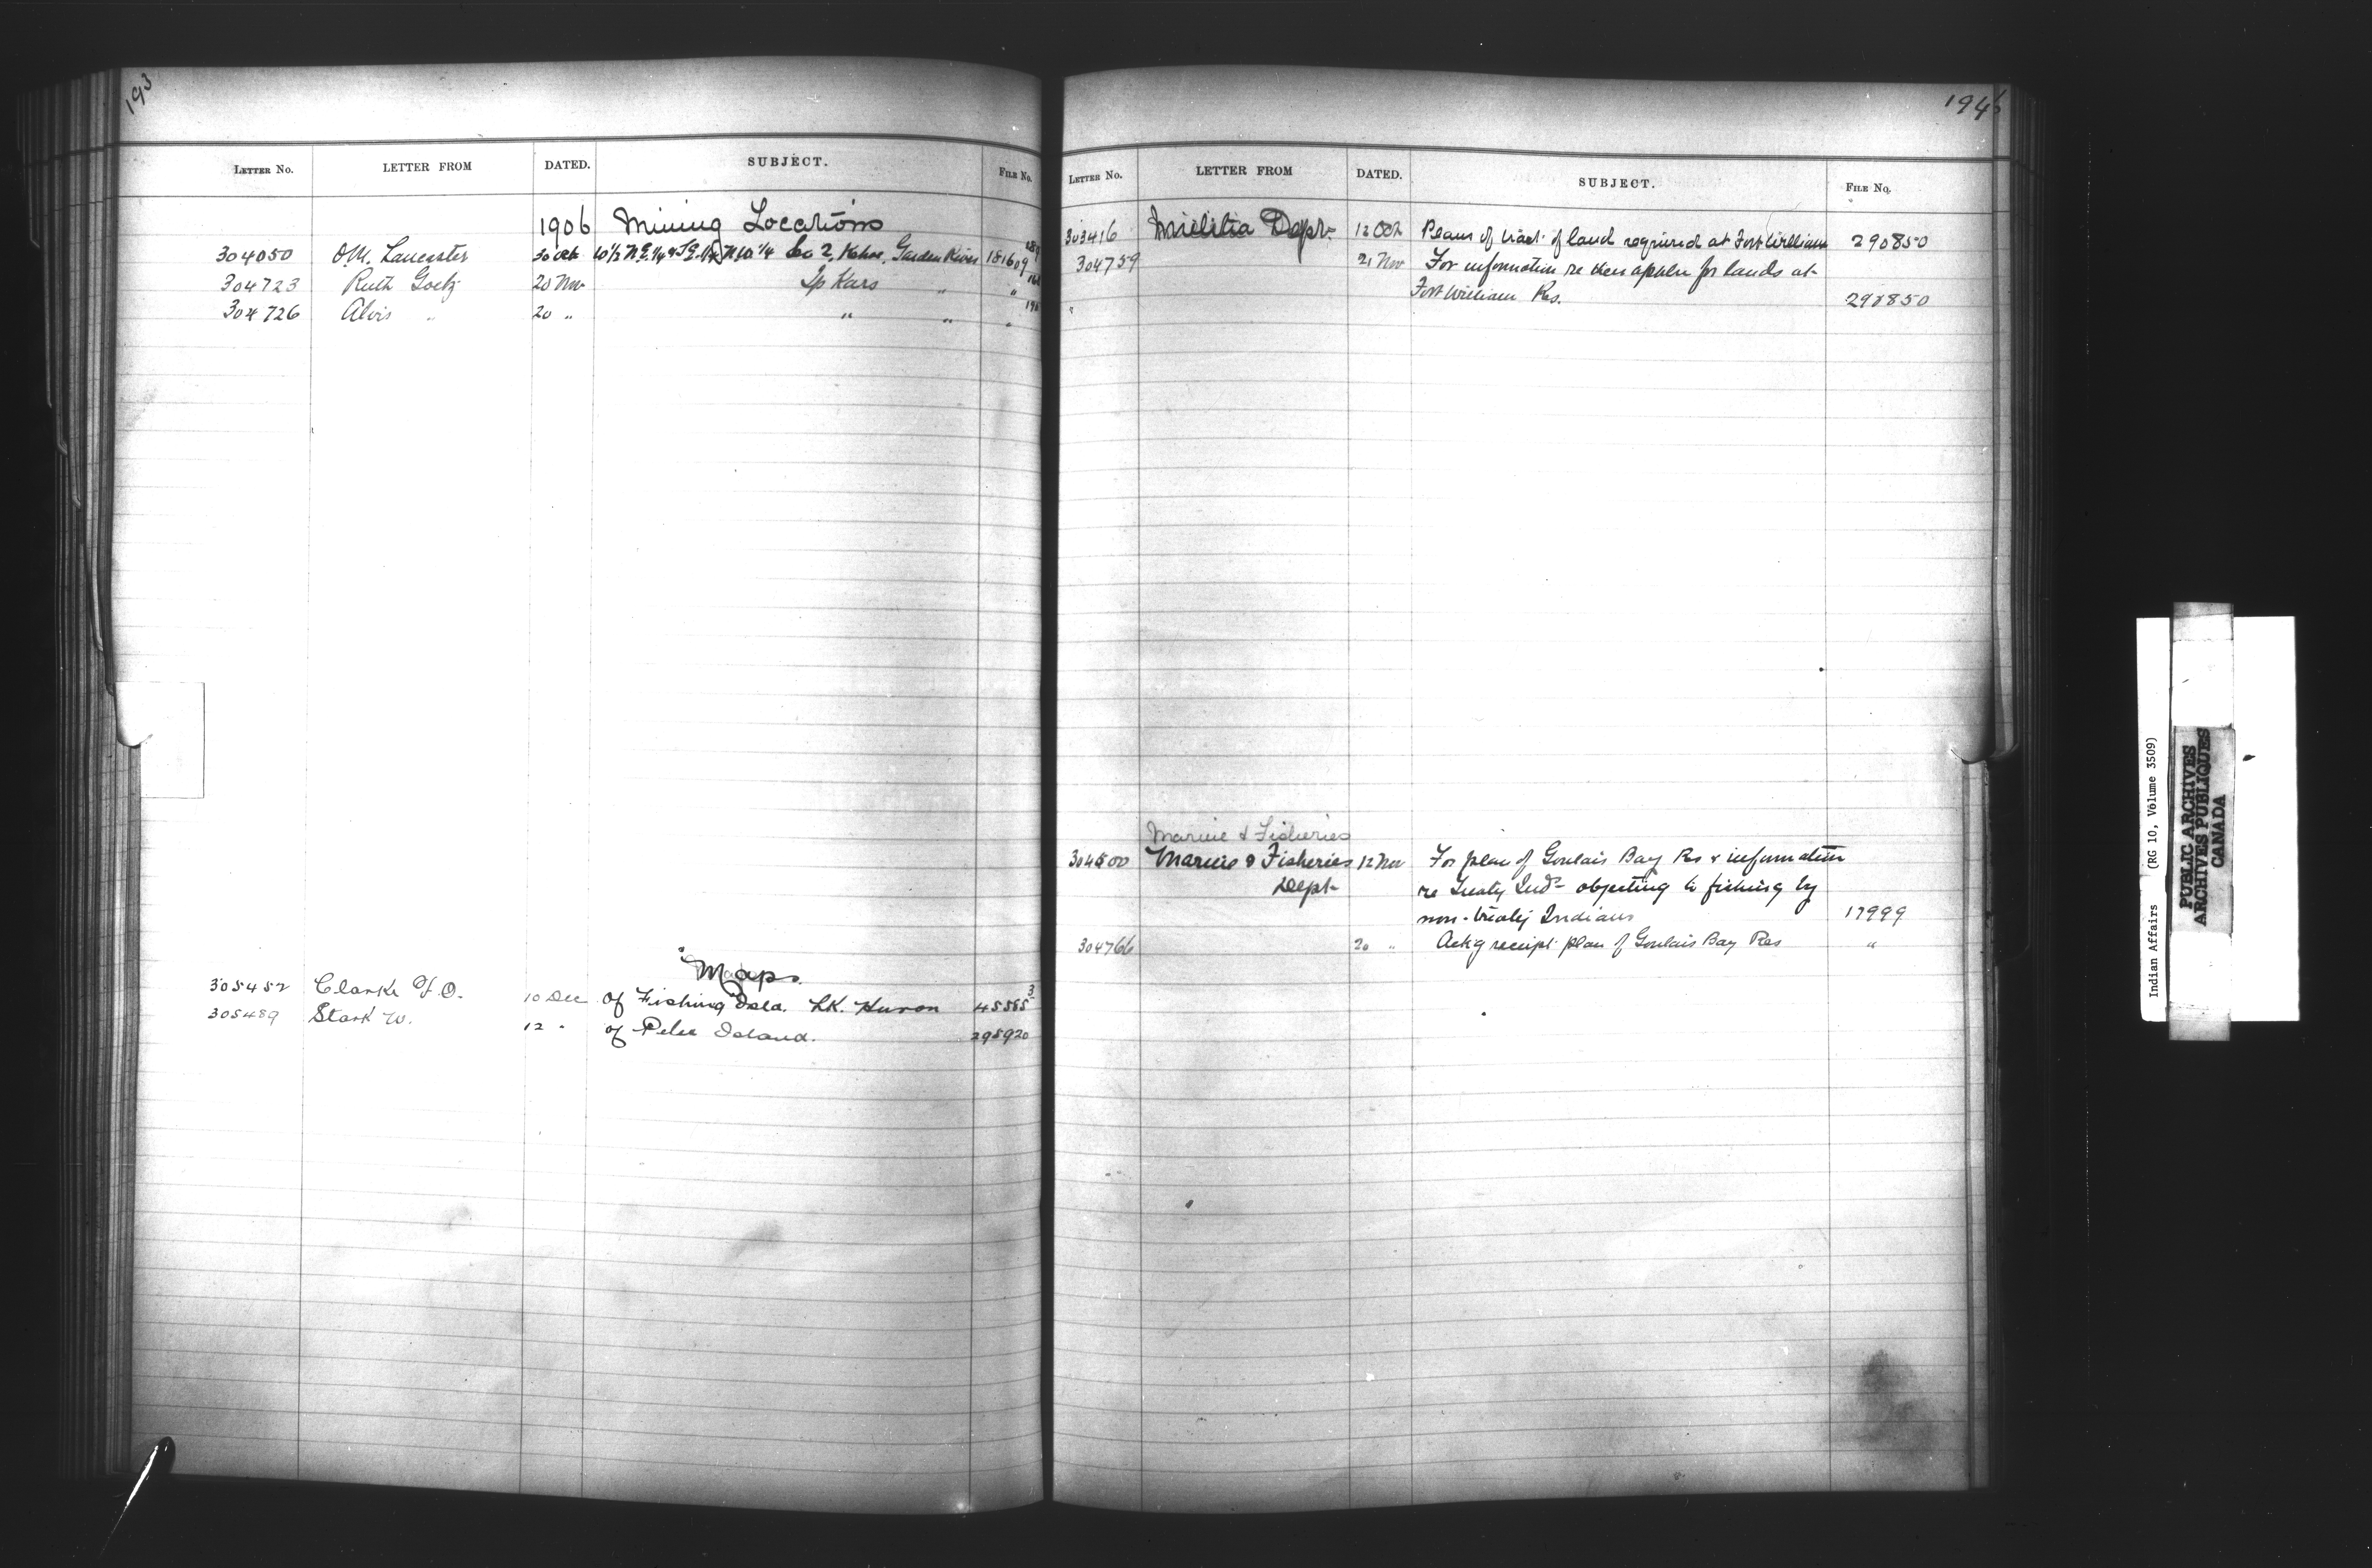 193
LETTER No. LETTER FROM DATED. SUBJECT. FILE No.
1906 Mining Locations
304050 O.M. Lancaster 30 Oct W 1/2 N.E. 1/4 S.E. 1/4 N W 1/4 Sec 2, Kehoe, Garden River 181609
304723 Ruth Goetz 20 Nov Tp Kars " "
304726 Alois " 20 " " " "
Maps.
305452 Clarke F.O. 10 Dec of Fishing Isld. LK. Huron 45585 3
305489 Stark W. 12 " of Pelee Island. 295920
194
LETTER No. LETTER FROM DATED. SUBJECT. FILE No.
303416 Militia Dept. 12 Oct Plans of tract of land required at Fort William 290850
304759 21 Nov For information re their appln for lands at
" Fort William Res. 290850
Marine & Fisheries
304500 Marine & Fisheries 12 Nov For plan of Goulais Bay Res & information
Dept re Treaty Inds objecting to fishing by
non-treaty Indians 17999
304766 20 " Ackg receipt plan of Goulais Bay Res "
Indian Affairs (RG 10, Volume 3509)
PUBLIC ARCHIVES
ARCHIVES PUBLIQUES
CANADA